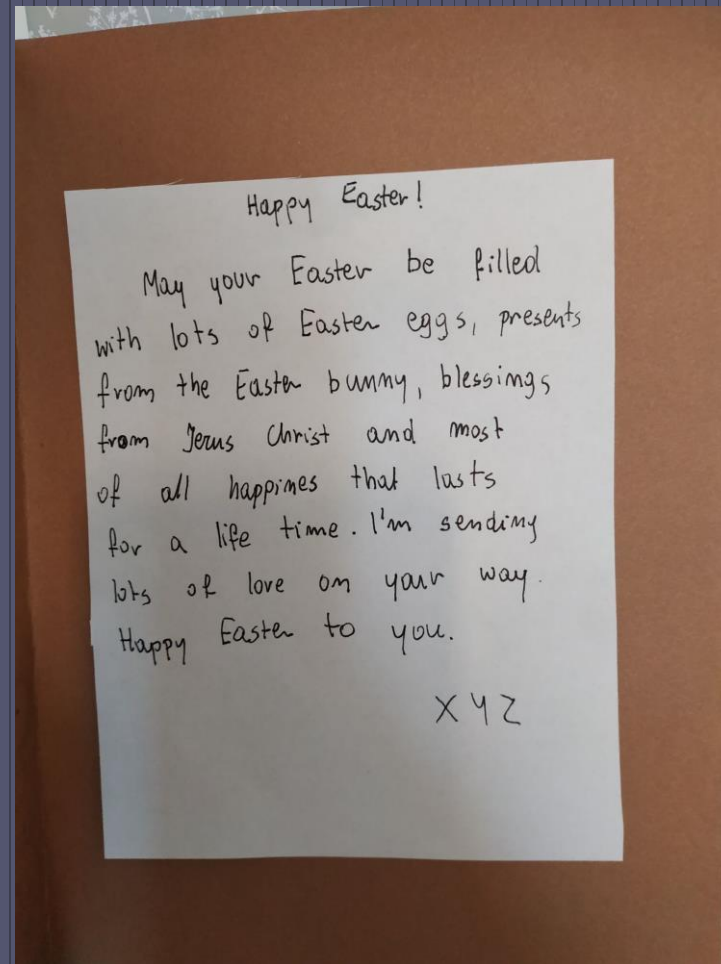 Happy Easter!
May your Easter be filled
with lots of Easter eggs, presents
from the Easter bunny, blessings
from Jesus Christ and most
of all happines that lasts
for a life time. I'm sending
lots of love on your way.
Happy Easter to you.
XYZ